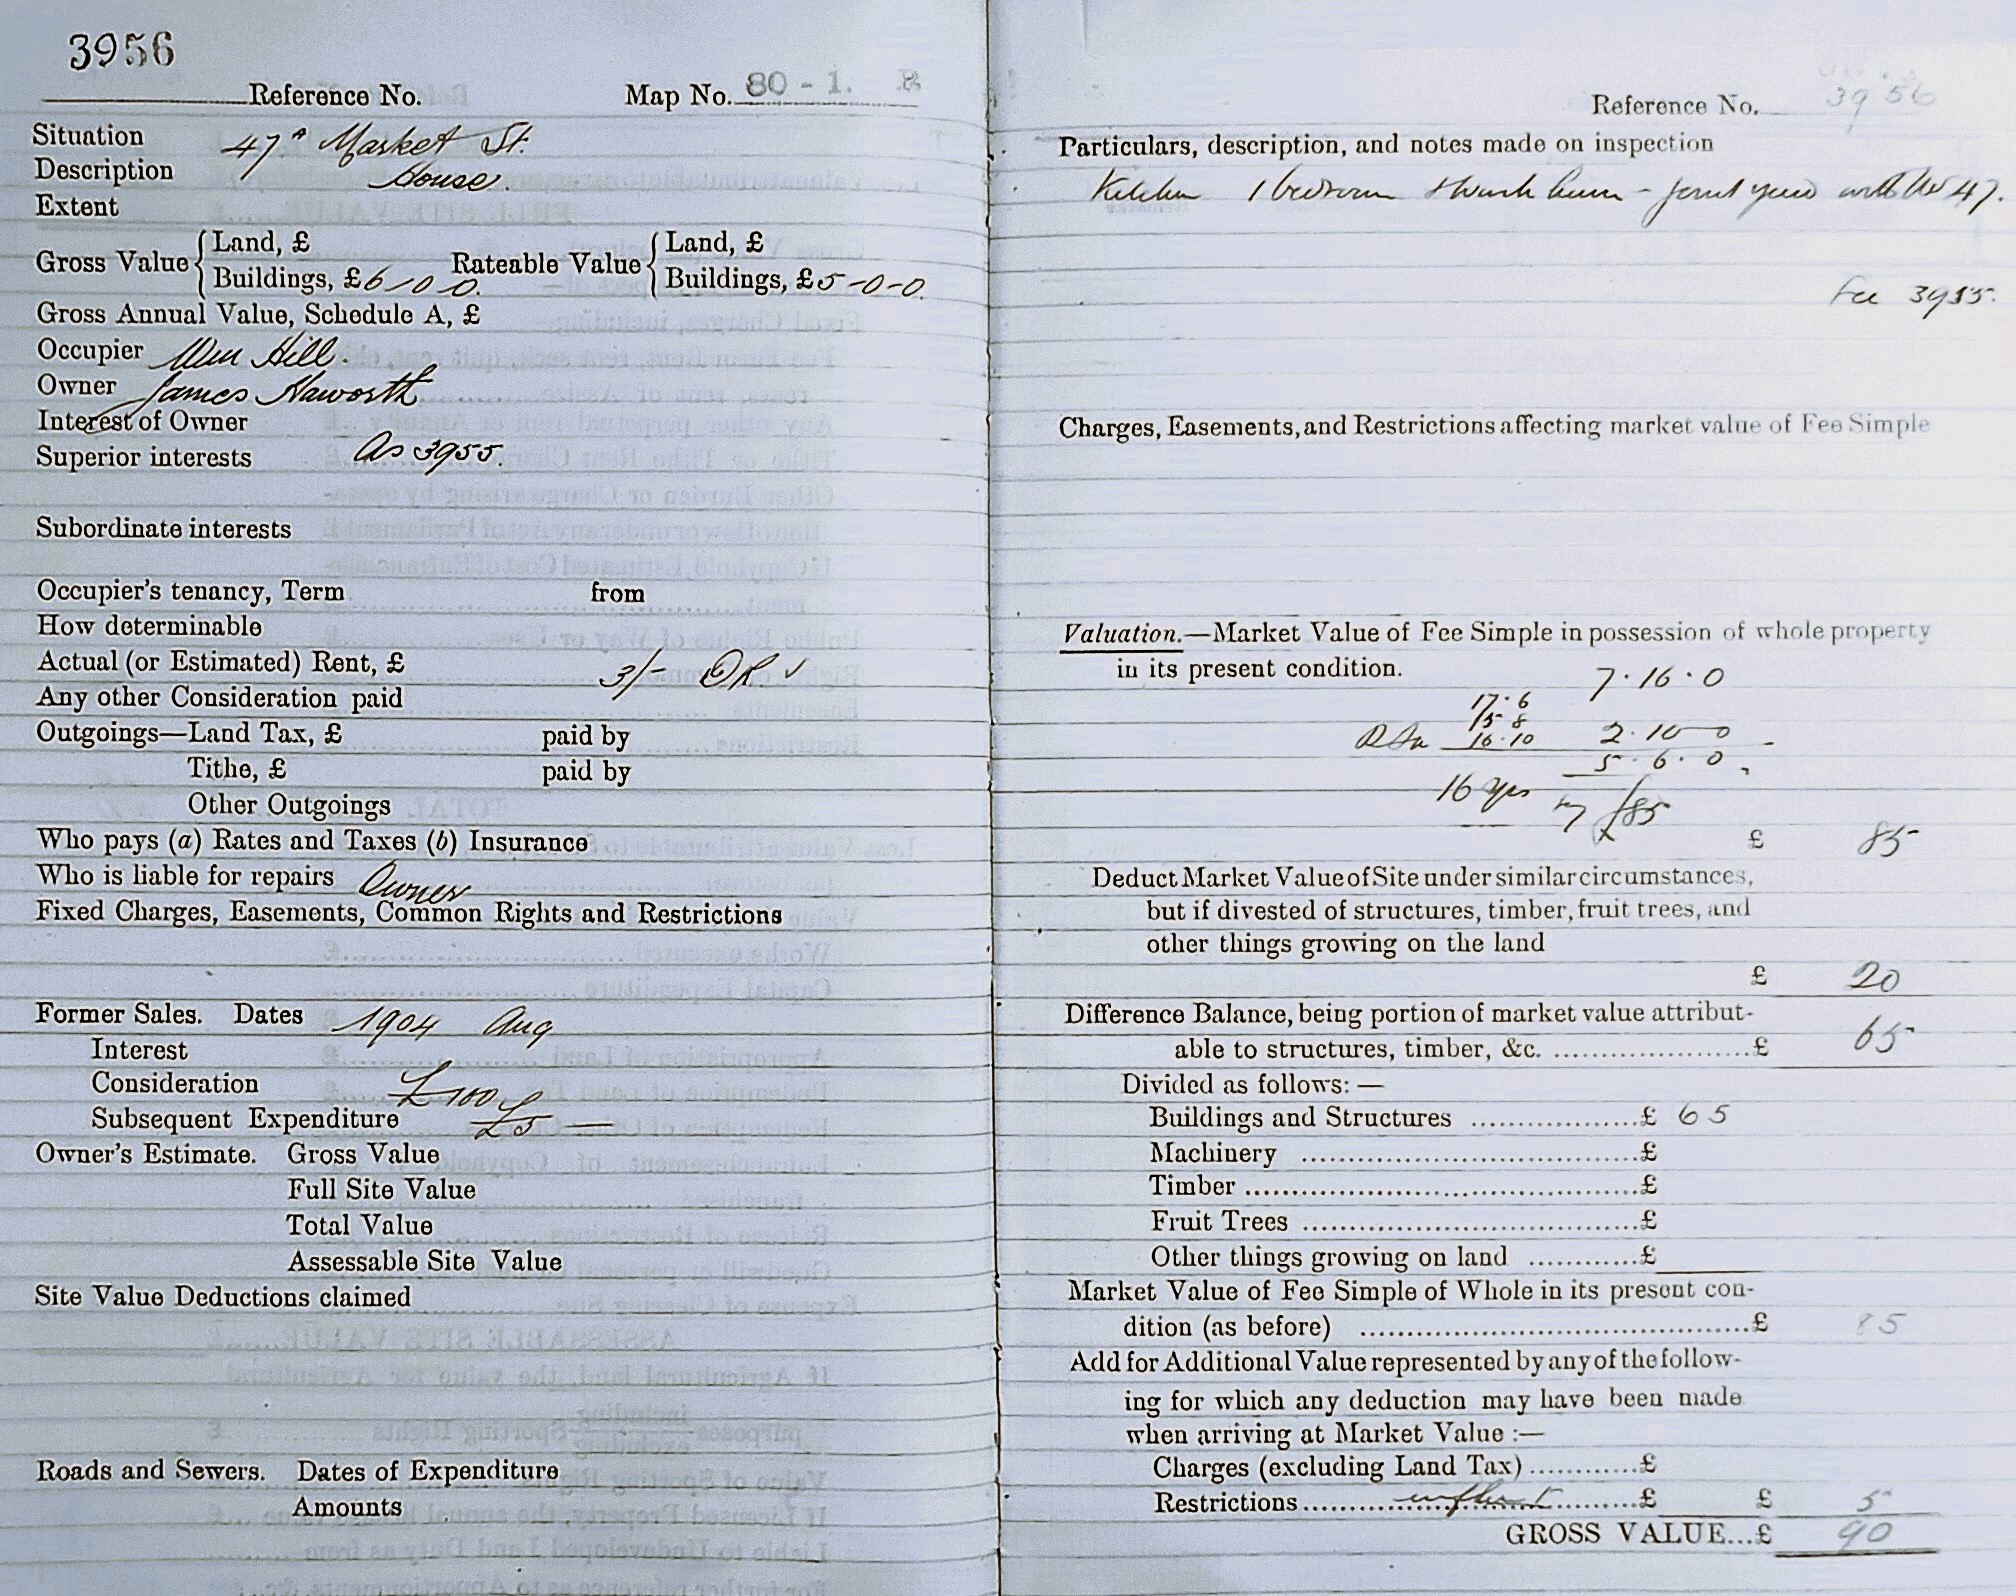 3956
Reference No. Map No. 80 - 1.
Situation 47ᴬ Market St.
Description House.
Extent
Gross Value { Land, £ Rateable Value { Land, £
Buildings, £6-0-0. Buildings, £5-0-0.
Gross Annual Value, Schedule A, £
Occupier Wm Hill.
Owner James Haworth
Interest of Owner
Superior interests As 3955.
Subordinate interests
Occupier's tenancy, Term from
How determinable
Actual (or Estimated) Rent, £ 3/-
Any other Consideration paid
Outgoings—Land Tax, £ paid by
Tithe, £ paid by
Other Outgoings
Who pays (a) Rates and Taxes (b) Insurance
Who is liable for repairs Owner
Fixed Charges, Easements, Common Rights and Restrictions
Former Sales. Dates 1904 Aug
Interest
Consideration £100
Subsequent Expenditure £5 —
Owner's Estimate. Gross Value
Full Site Value
Total Value
Assessable Site Value
Site Value Deductions claimed
Roads and Sewers. Dates of Expenditure
Amounts
Reference No. 3956
Particulars, description, and notes made on inspection
Kitchen 1 bedroom joint yard with 47.
3955.
Charges, Easements, and Restrictions affecting market value of Fee Simple
Valuation.—Market Value of Fee Simple in possession of whole property
in its present condition. 7.16.0
17.6
15.8
16.10 2.10 0
5.6.0
16 yrs £85
£ 85
Deduct Market Value of Site under similar circumstances,
but if divested of structures, timber, fruit trees, and
other things growing on the land
£ 20
Difference Balance, being portion of market value attribut-
able to structures, timber, &c. £ 65
Divided as follows: —
Buildings and Structures £ 65
Machinery £
Timber £
Fruit Trees £
Other things growing on land £
Market Value of Fee Simple of Whole in its present con-
dition (as before) £ 85
Add for Additional Value represented by any of the follow-
ing for which any deduction may have been made
when arriving at Market Value :—
Charges (excluding Land Tax) £
Restrictions £ £ 5
GROSS VALUE...£ 90